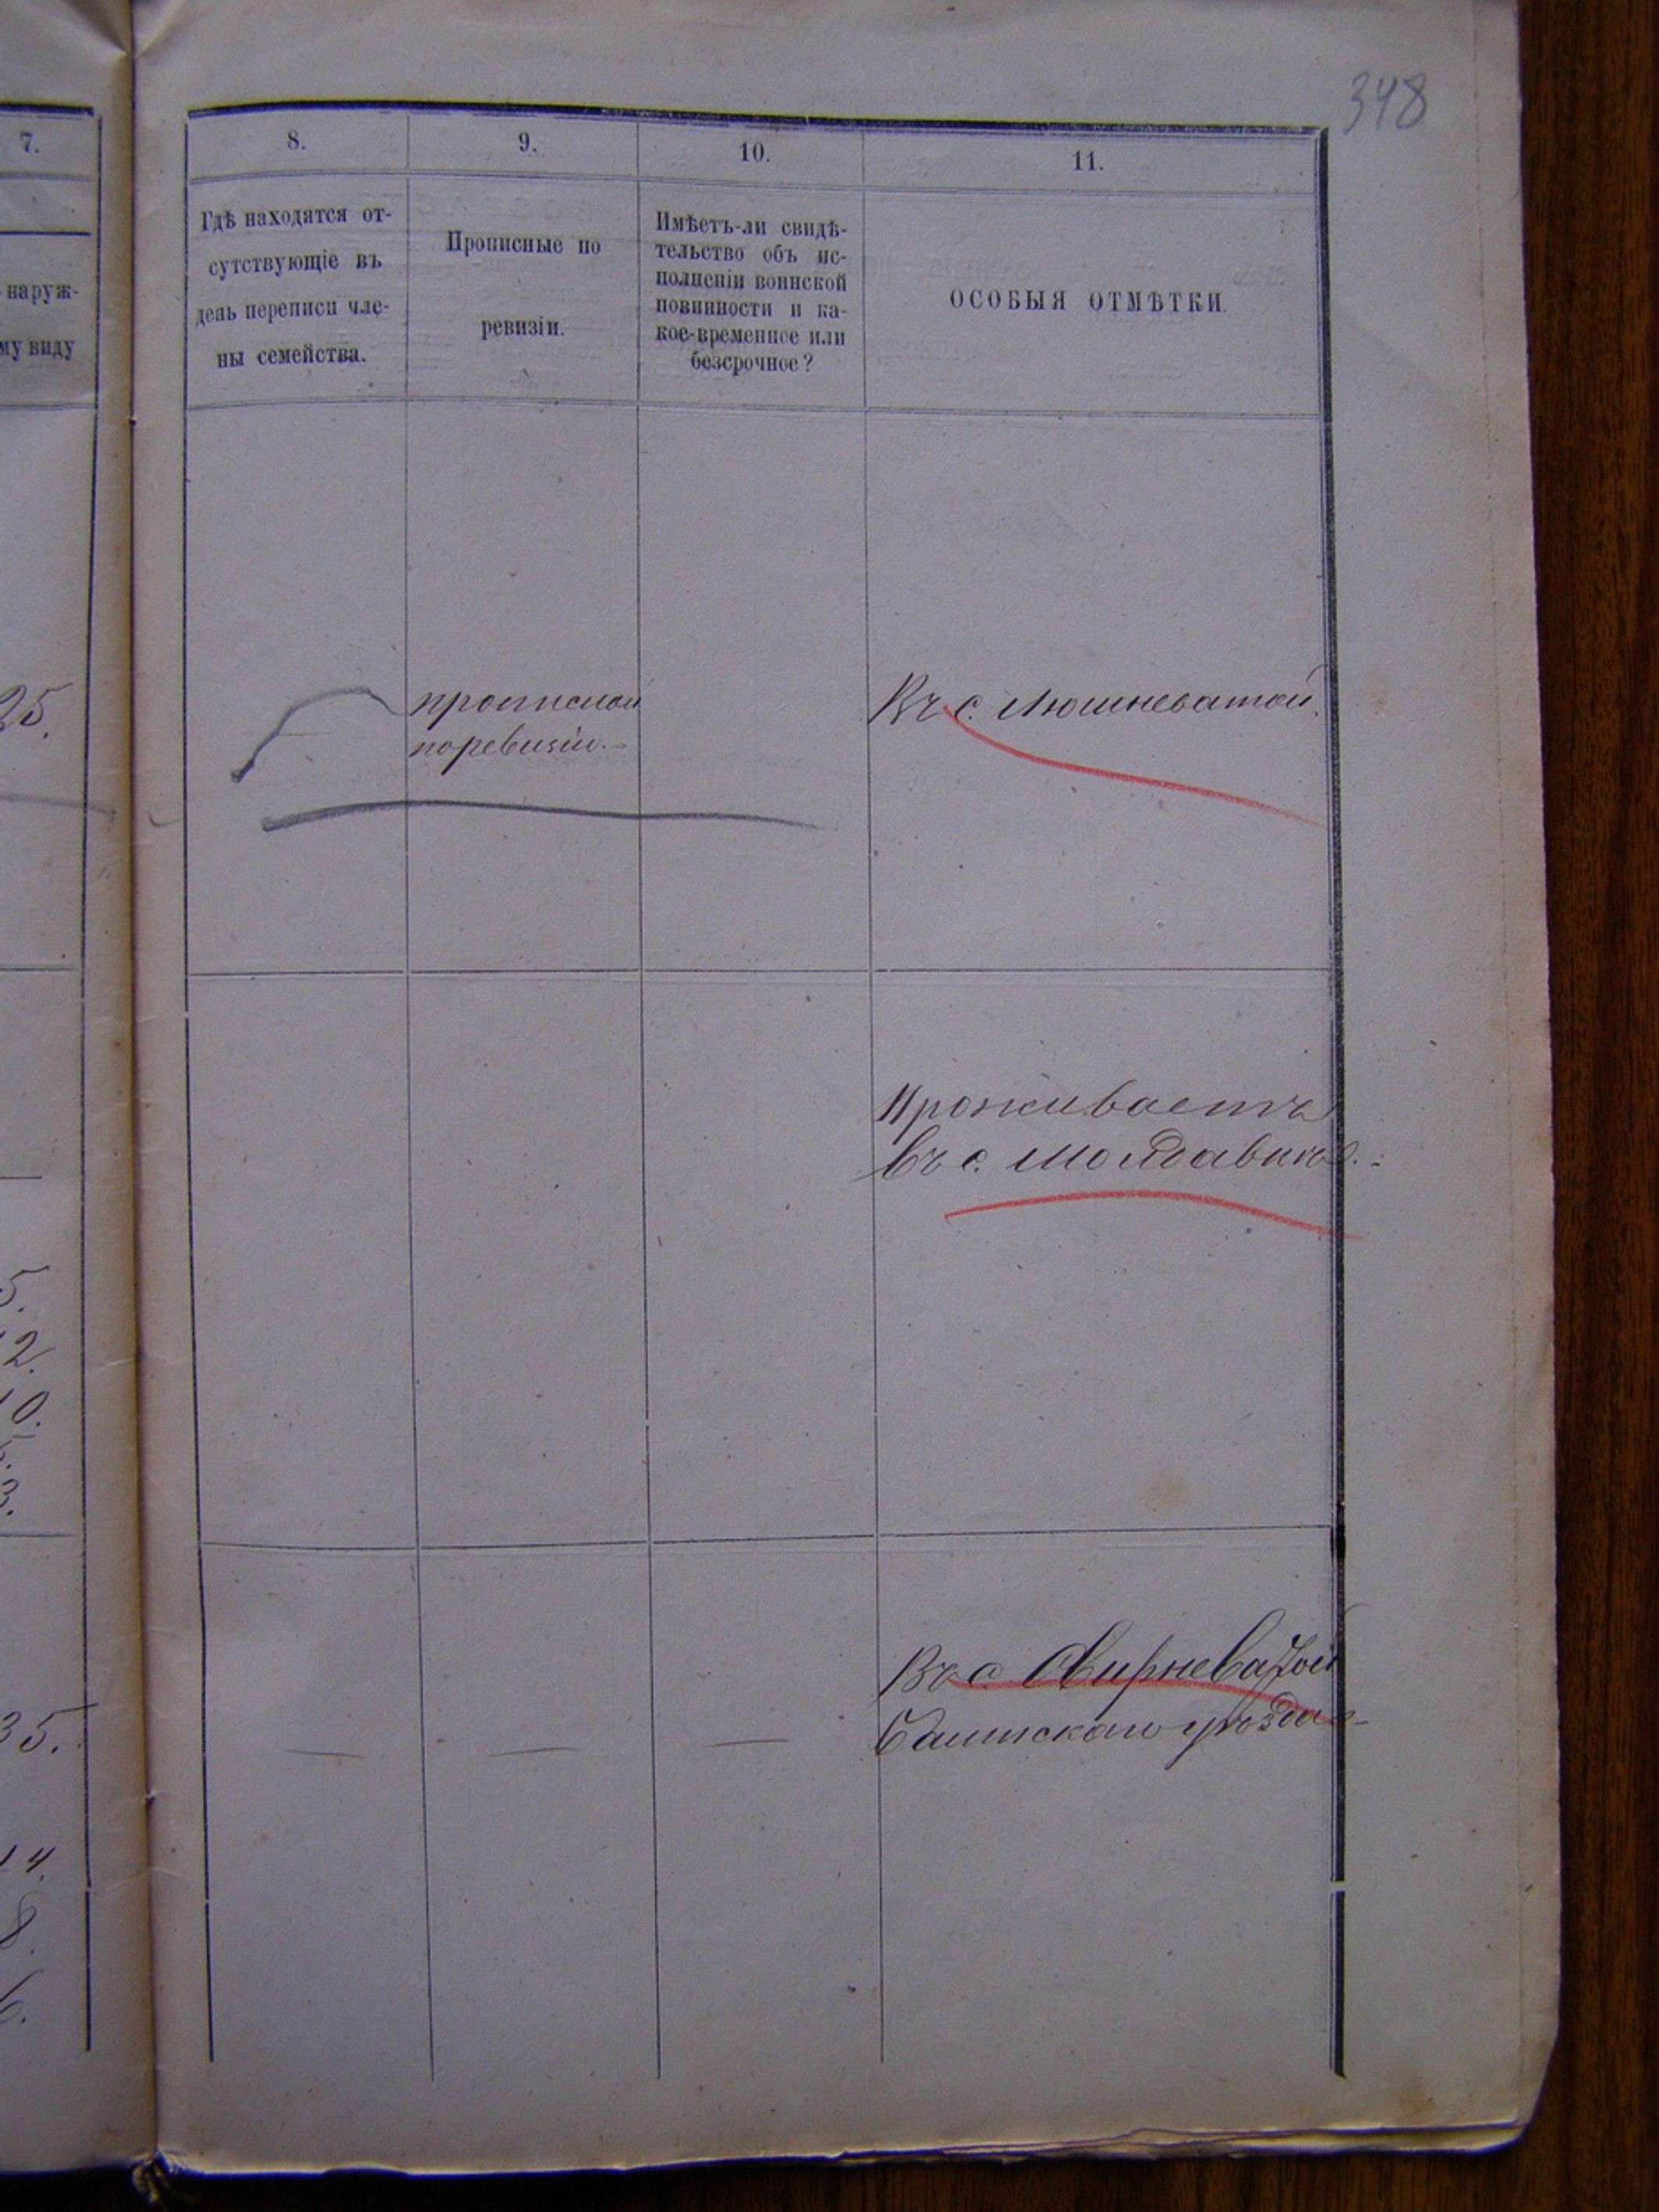 348
7.
8.
9.
10.
11.
наруж-
му виду
Гдѣ находятся от-
сутствующіе въ
день переписи чле-
ны семейства.
Прописные по
ревизіи.
Имѣетъ-ли свидѣ-
тельство объ ис-
полненіи воинской
повинности и ка-
кое-временное или
безсрочное?
ОСОБЫЯ ОТМѢТКИ.
25.
прописной
по ревизіи.
Въ с. Люшневатой.
Проживаетъ
въ с. Молдавкѣ.
5.
12.
10.
3.
Въ с. Свирневатой
уѣзда
35.
14.
8.
6.